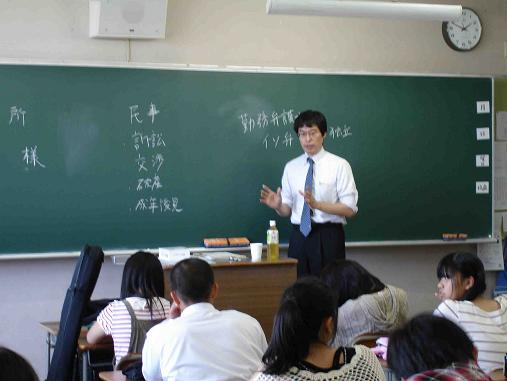 所
様
民事
・訴訟
・交渉
・破産
・成年後見
勤務弁護
イソ弁
独立